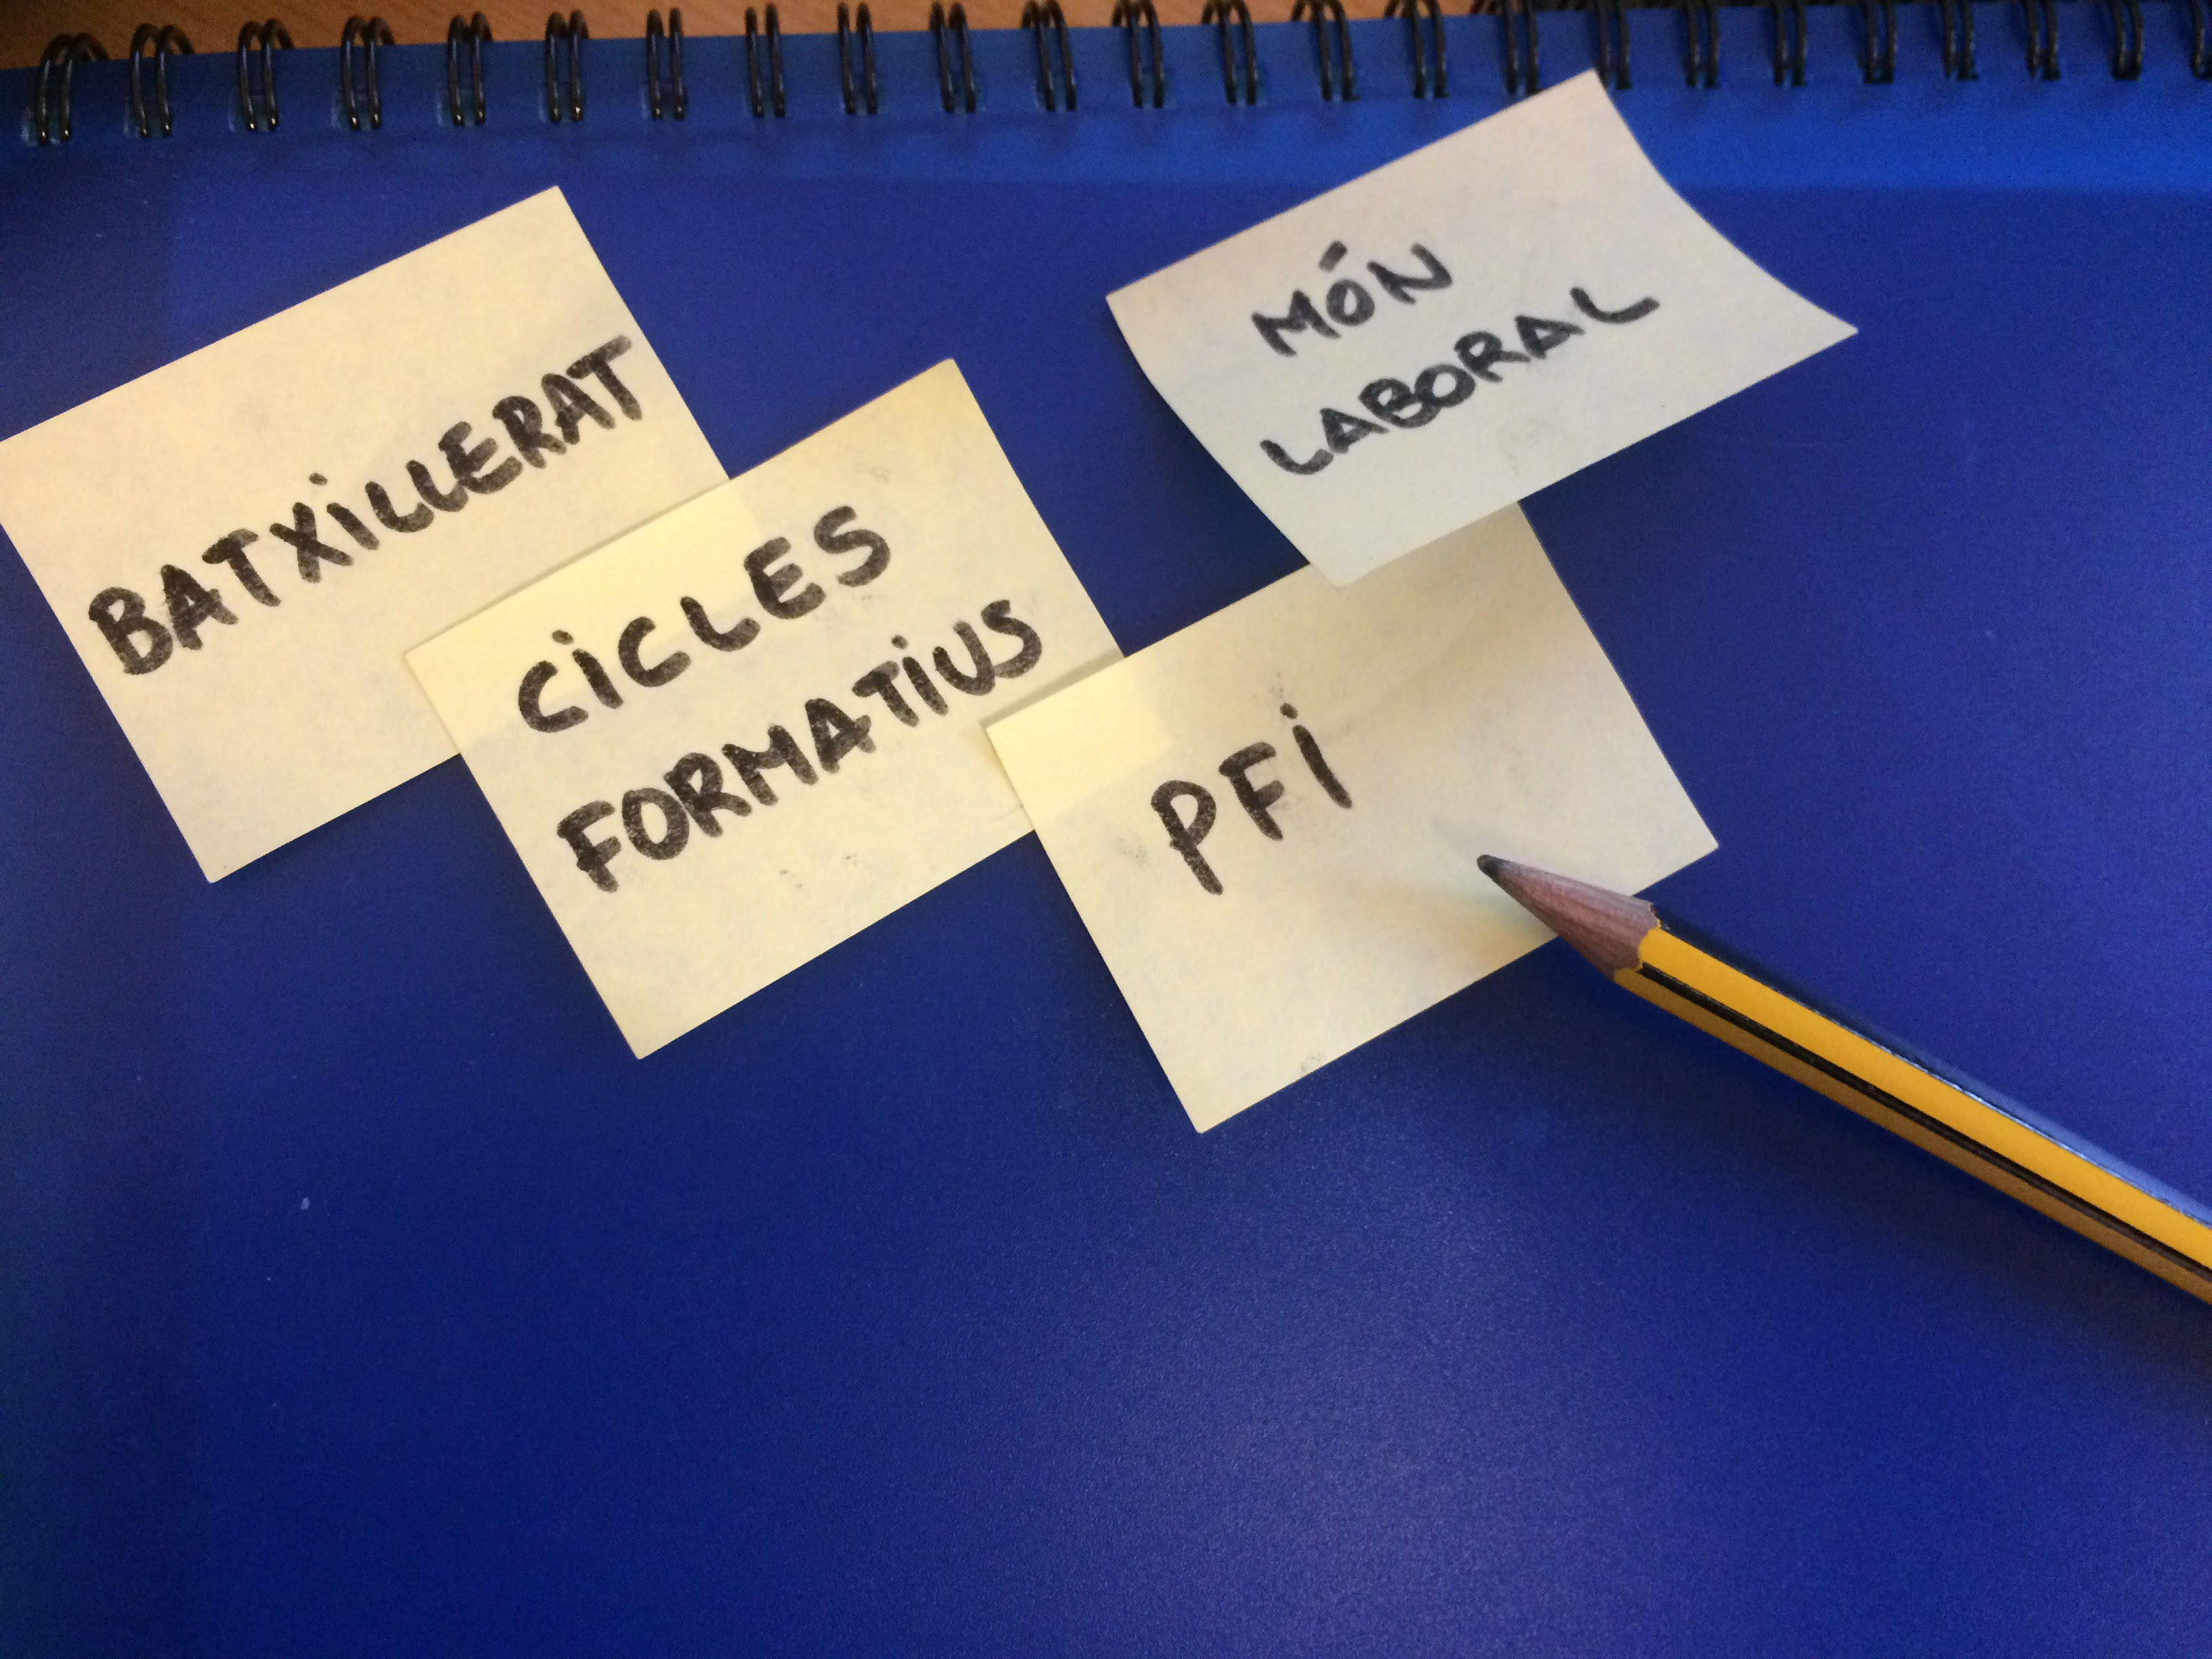 BATXiLLERAT
CiCLES
FORMATiUS
PFi
MÓN
LABORAL